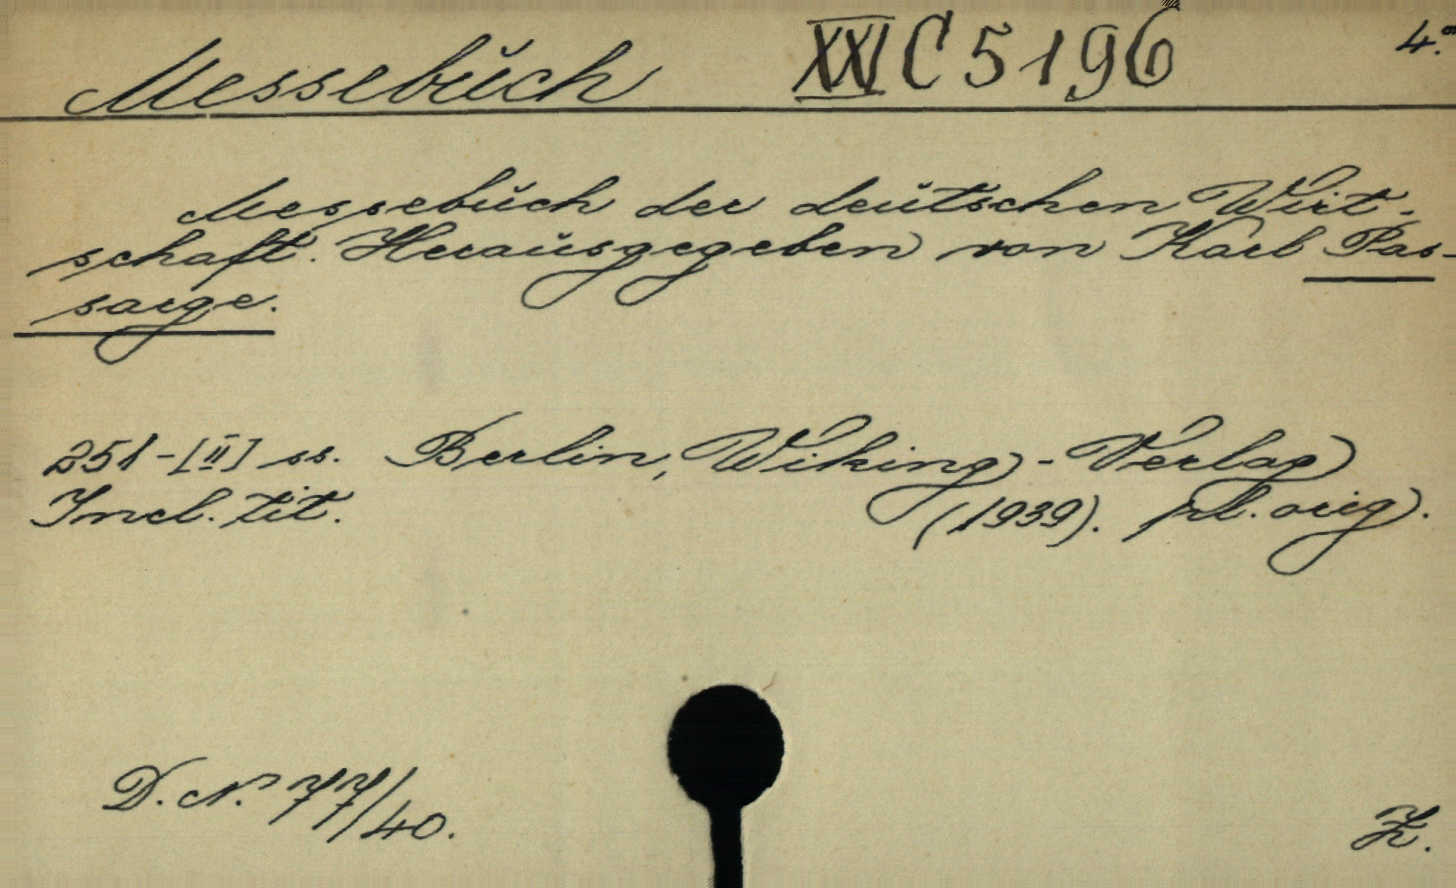 Messebuch XXI C 5196 4.°
Messebuch der deutschen Wirt-
schaft. Herausgegeben von Karl Pas-
sarge.
251-[II] ss. Berlin, Wiking-Verlag
Incl. tit. (1939). pl. orig.
D. N.° 77/40.
Z.